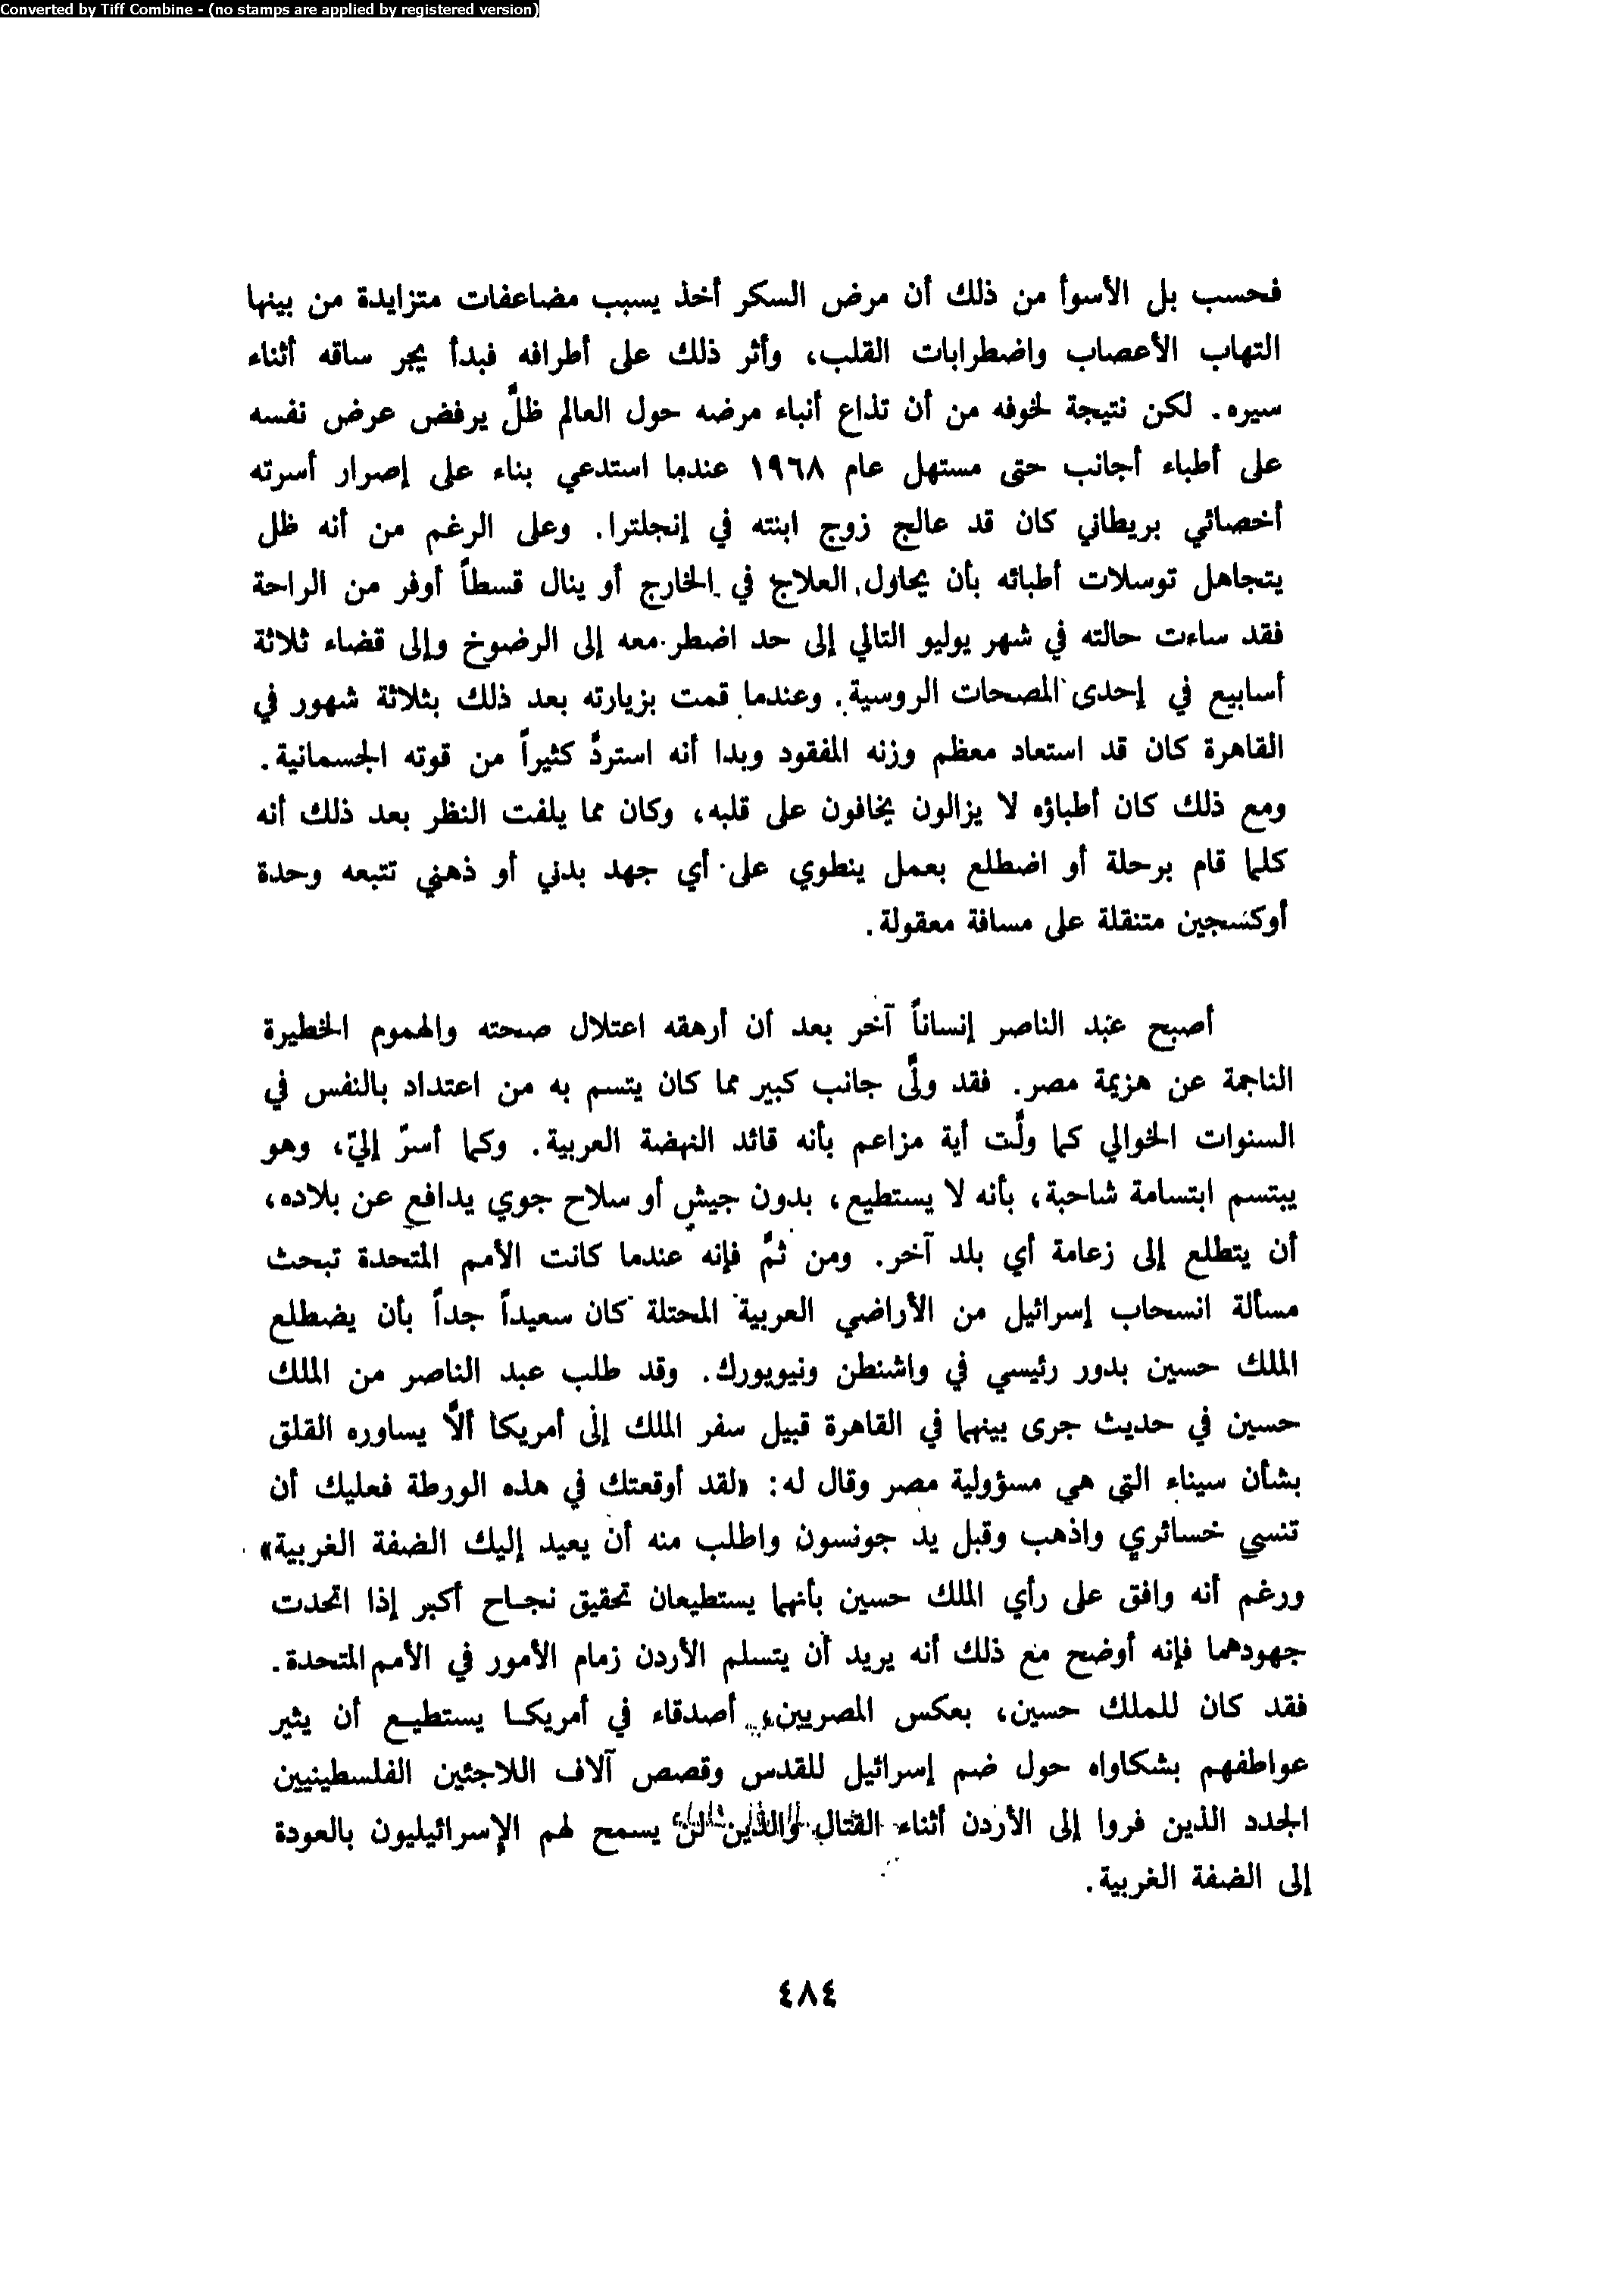 Converted by Tiff Combine - (no stamps are applied by registered version)
فحسب بل الأسوأ من ذلك أن مرض السكر أخذ يسبب مضاعفات متزايدة من بينها
التهاب الأعصاب واضطرابات القلب، وأثر ذلك على أطرافه فبدأ يجر ساقه أثناء
سيره. لكن نتيجة لخوفه من أن تذاع أنباء مرضه حول العالم ظلَّ يرفض عرض نفسه
على أطباء أجانب حتى مستهل عام ١٩٦٨ عندما استدعي بناء على إصرار أسرته
أخصائي بريطاني كان قد عالج زوج ابنته في إنجلترا. وعلى الرغم من أنه ظل
يتجاهل توسلات أطبائه بأن يحاول العلاج في الخارج أو ينال قسطاً أوفر من الراحة
فقد ساءت حالته في شهر يوليو التالي إلى حد اضطر معه إلى الرضوخ وإلى قضاء ثلاثة
أسابيع في إحدى المصحات الروسية. وعندما قمت بزيارته بعد ذلك بثلاثة شهور في
القاهرة كان قد استعاد معظم وزنه المفقود وبدا أنه استردَّ كثيراً من قوته الجسمانية.
ومع ذلك كان أطباؤه لا يزالون يخافون على قلبه، وكان مما يلفت النظر بعد ذلك أنه
كلما قام برحلة أو اضطلع بعمل ينطوي على أي جهد بدني أو ذهني تتبعه وحدة
أوكسجين متنقلة على مسافة معقولة.
أصبح عبد الناصر إنساناً آخر بعد أن أرهقه اعتلال صحته والهموم الخطيرة
الناجمة عن هزيمة مصر. فقد ولَّى جانب كبير مما كان يتسم به من اعتداد بالنفس في
السنوات الخوالي كما ولَّت أية مزاعم بأنه قائد النهضة العربية. وكما أسرّ إليّ، وهو
يبتسم ابتسامة شاحبة، بأنه لا يستطيع، بدون جيش أو سلاح جوي يدافع عن بلاده،
أن يتطلع إلى زعامة أي بلد آخر. ومن ثمَّ فإنه عندما كانت الأمم المتحدة تبحث
مسألة انسحاب إسرائيل من الأراضي العربية المحتلة كان سعيداً جداً بأن يضطلع
الملك حسين بدور رئيسي في واشنطن ونيويورك. وقد طلب عبد الناصر من الملك
حسين في حديث جرى بينهما في القاهرة قبيل سفر الملك إلى أمريكا ألَّا يساوره القلق
بشأن سيناء التي هي مسؤولية مصر وقال له: «لقد أوقعتك في هذه الورطة فعليك أن
تنسى خسائري واذهب وقبل يد جونسون واطلب منه أن يعيد إليك الضفة الغربية».
ورغم أنه وافق على رأي الملك حسين بأنهما يستطيعان تحقيق نجاح أكبر إذا اتحدت
جهودهما فإنه أوضح مع ذلك أنه يريد أن يتسلم الأردن زمام الأمور في الأمم المتحدة.
فقد كان للملك حسين، بعكس المصريين، أصدقاء في أمريكا يستطيع أن يثير
عواطفهم بشكاواه حول ضم إسرائيل للقدس وقصص آلاف اللاجئين الفلسطينيين
الجدد الذين فروا إلى الأردن أثناء القتال والذين لن يسمح لهم الإسرائيليون بالعودة
إلى الضفة الغربية.
٤٨٤